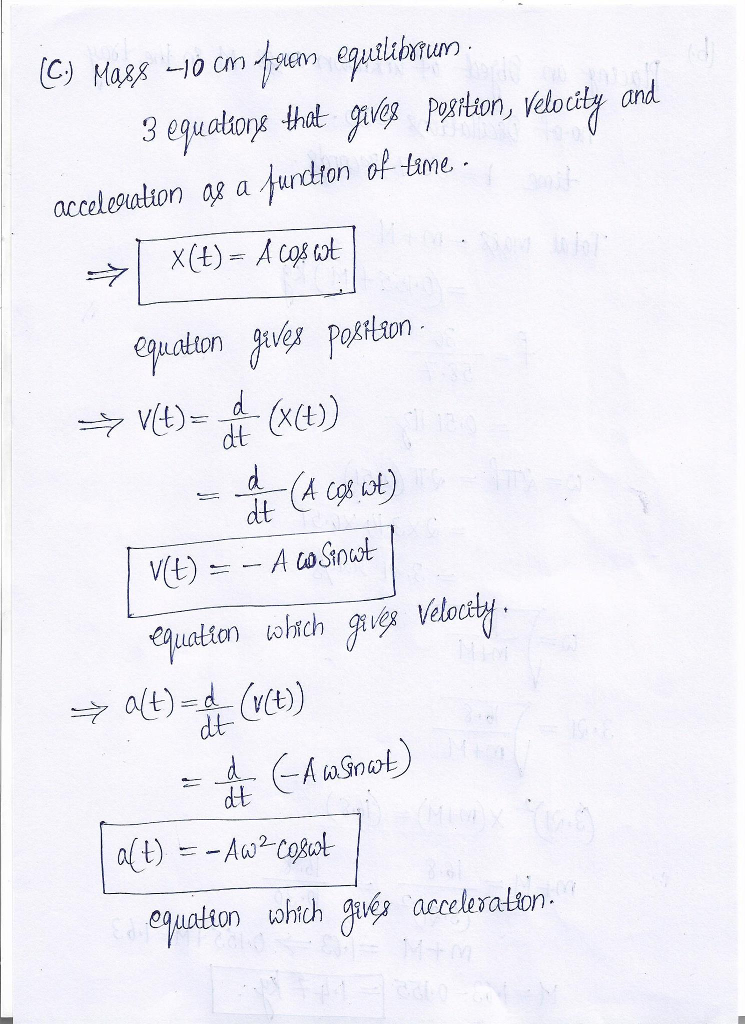 (C.) Mass -10 cm from equilibrium.
3 equations that gives position, velocity and
acceleration as a function of time.
⇒ X(t) = A cos ωt
equation gives position.
⇒ V(t) = d/dt (X(t))
= d/dt (A cos ωt)
V(t) = - A ω Sin ωt
equation which gives velocity.
⇒ a(t) = d/dt (V(t))
= d/dt (-A ω Sin ωt)
a(t) = - Aω² cos ωt
equation which gives acceleration.